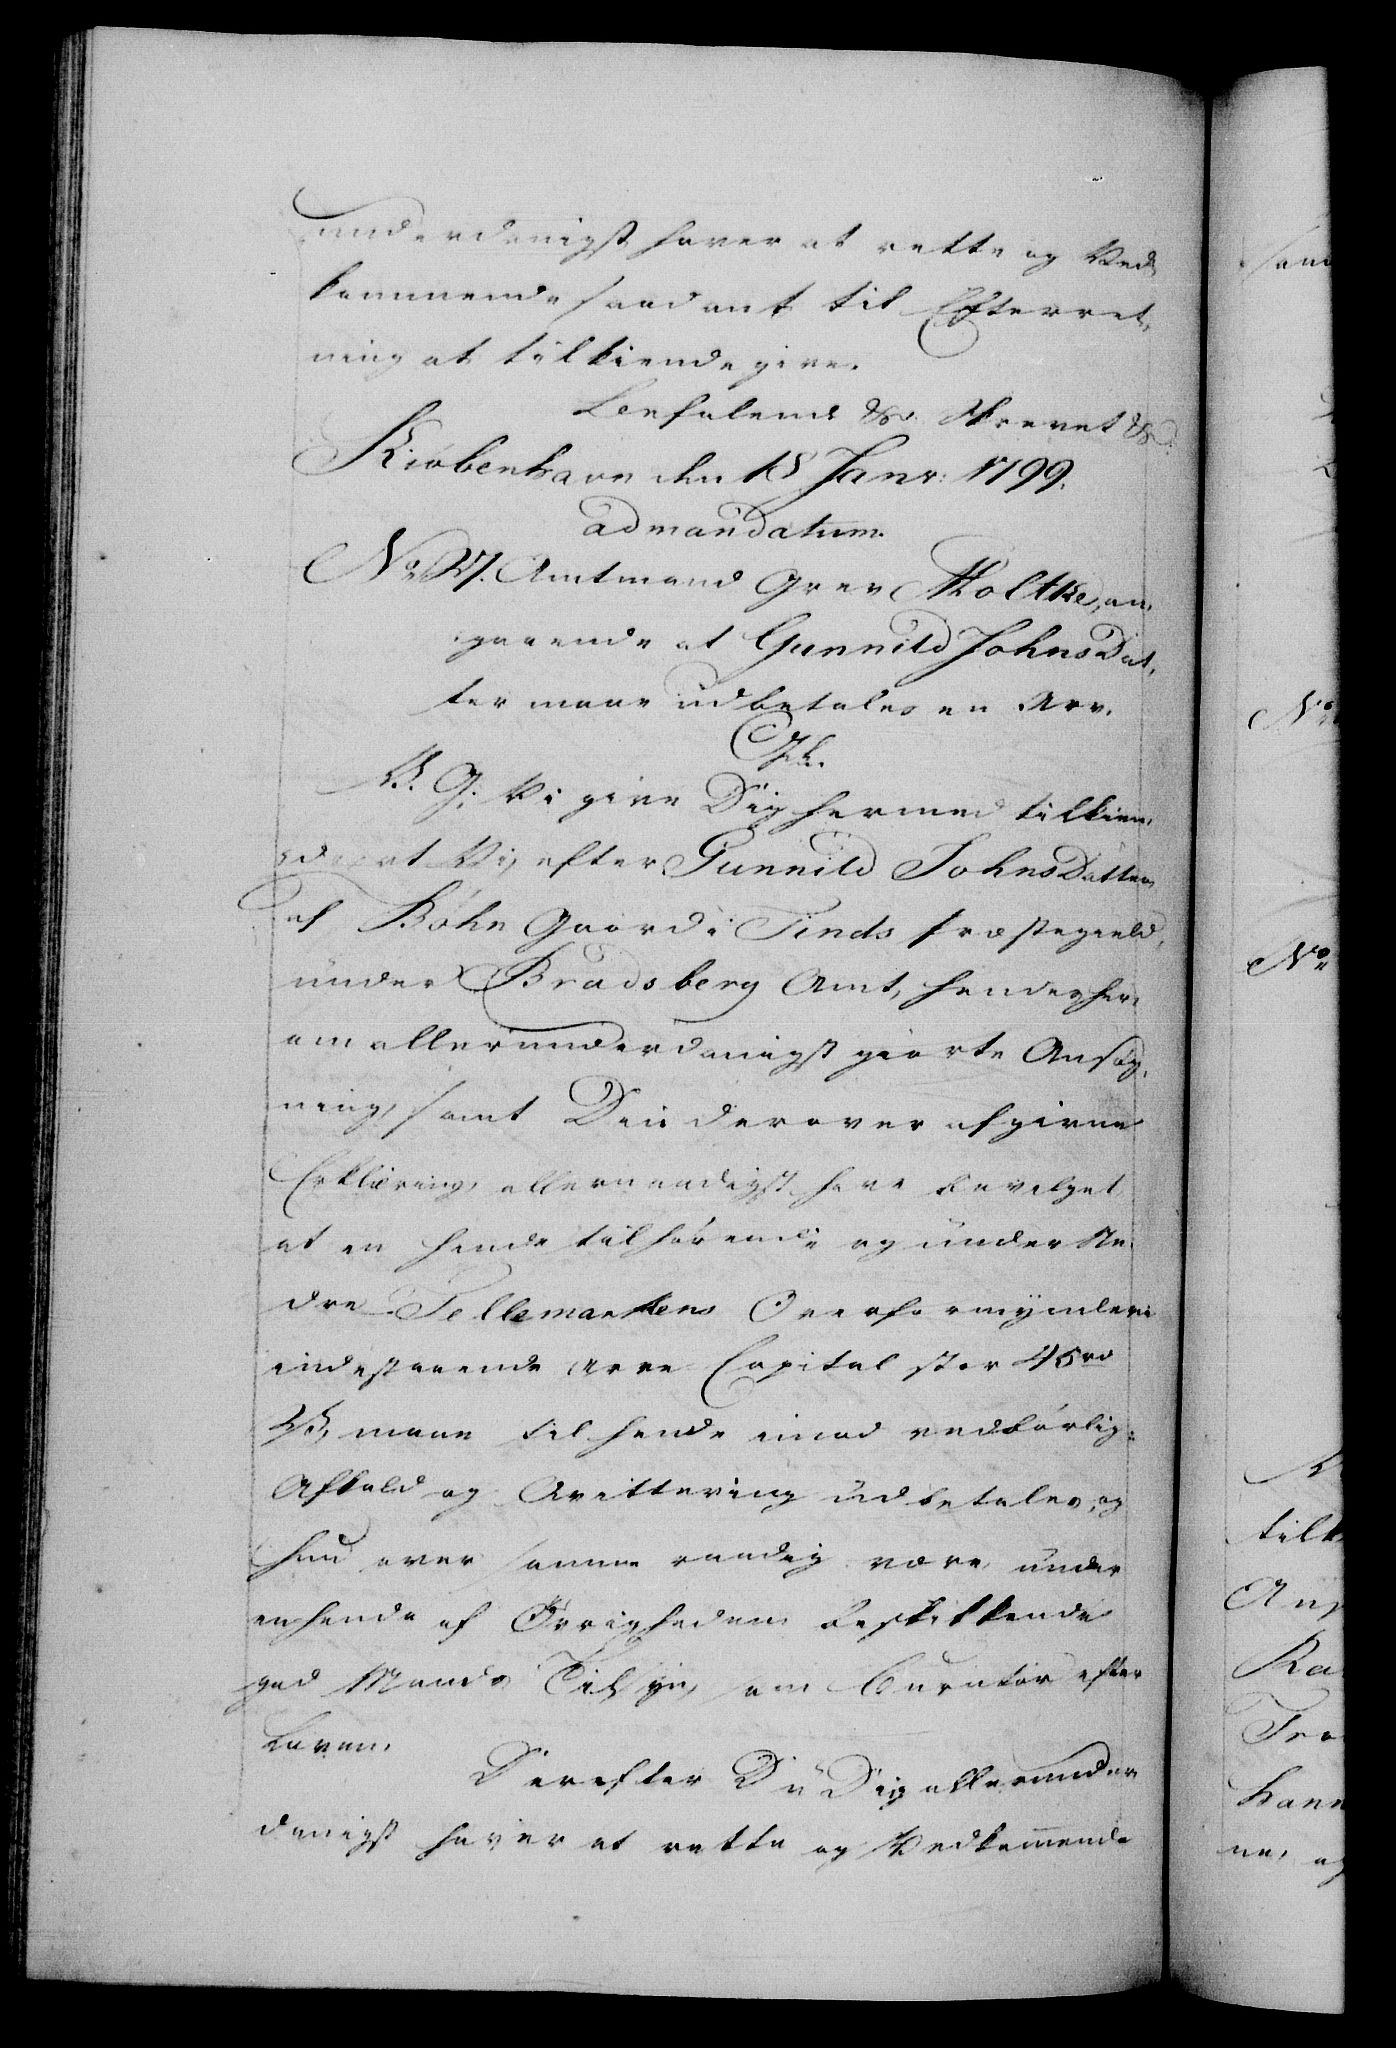 underdanigst haver at rette og Ved,
kommende saadant til Efterret,
ning at tilkiendegive.
Befalend &c. Skrevet &c.
Kiøbenhavn den 18 Janv: 1799.
ad mandatum.
No 27. Amtmand Grev Moltke, an,
gaaende at Gunnild Johns Dat,
ter maae udbetales en Arv.
C. 7.
V. G: Vi give Dig hermed tilkien,
de, at Vi, efter Gunnild Johns Datter
af Bøhn Gaard i Tinds Præstegield,
under Bradsberg Amt, hendes her,
om allerunderdanigst giorte Ansøg,
ning, samt Din derover afgivne
Erklæring, allernaadigst have bevilget,
at en hende tilhørende og under Ne,
dre Tellemarkens Overformynderie
indestaaende Arve Capital stor 45 rd
W, maae til hende imod vedbørlig
Afkald og Qvittering udbetales, og
hun over samme raadig være, under
en hende af Øvrigheden beskikkende
god Mands Tilsyn, som Curator efter
Loven.
Derefter Du Dig allerunder
danigst haver at rette og Vedkommende